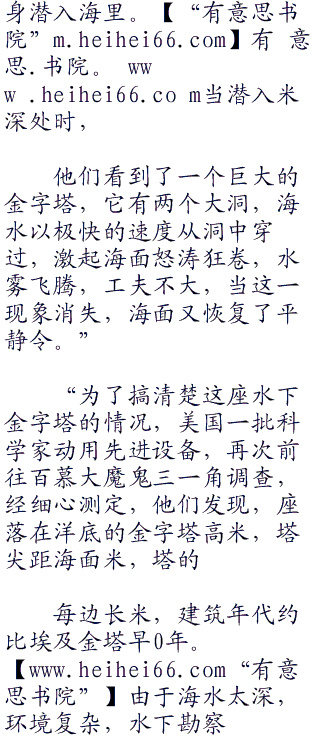 身潜入海里。【“有意思书
院”m.heihei66.com】有 意
思.书院。 ww
w .heihei66.co m当潜入米
深处时，
他们看到了一个巨大的
金字塔，它有两个大洞，海
水以极快的速度从洞中穿
过，激起海面怒涛狂卷，水
雾飞腾，工夫不大，当这一
现象消失，海面又恢复了平
静令。”
“为了搞清楚这座水下
金字塔的情况，美国一批科
学家动用先进设备，再次前
往百慕大魔鬼三一角调查，
经细心测定，他们发现，座
落在洋底的金字塔高米，塔
尖距海面米，塔的
每边长米，建筑年代约
比埃及金塔早0年。
【www.heihei66.com“有意
思书院”】由于海水太深，
环境复杂，水下勘察